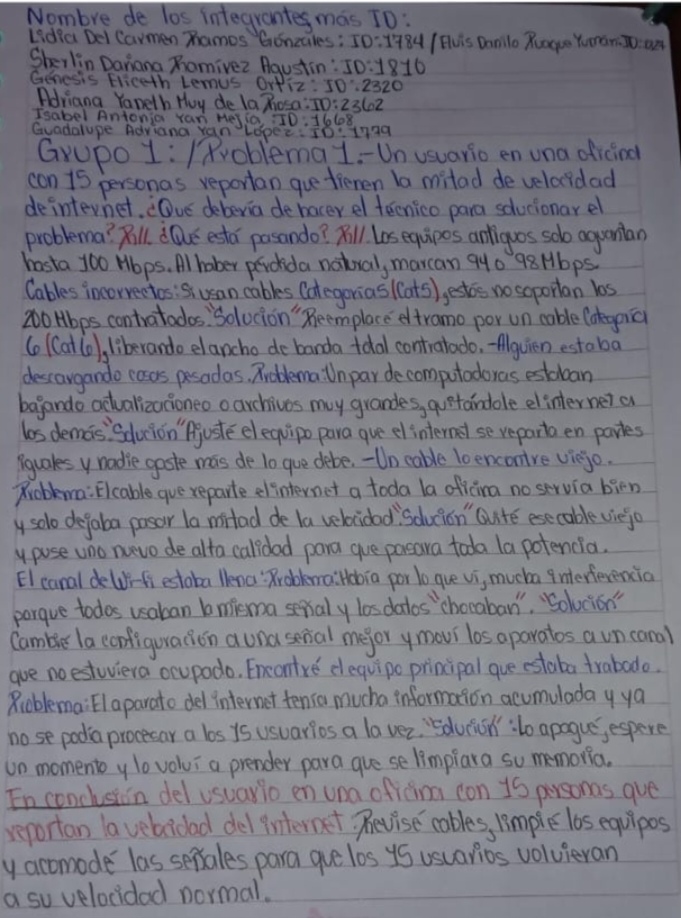 Nombre de los integrantes más ID:
Lidia Del Carmen Ramos Gonzáles: ID:1784 / Elvis Danilo Yumán ID:
Sherlin Dariana Ramírez Agustín: ID:1810
Génesis Eliceth Lemus Ortiz: ID:2320
Adriana Yaneth Muy de la Rosa: ID:2362
Isabel Antonia Yan Mejía, ID:1668
Guadalupe Adriana Yan López: ID:1779
Grupo 1: / Problema 1.-Un usuario en una oficina
con 15 personas reportan que tienen la mitad de velocidad
de internet. ¿Qué debería de hacer el técnico para solucionar el
problema? R/// ¿Qué está pasando? R/// Los equipos antiguos solo aguantan
hasta 100 Mbps. Al haber pérdida natural, marcan 94 o 98 Mbps
Cables incorrectos: Si usan cables Categoría 5 (Cat5), estos no soportan los
200 Mbps contratados. "Solución" Reemplacé el tramo por un cable Categoría
6 (Cat 6), liberando el ancho de banda total contratado. -Alguien estaba
descargando cosas pesadas. Problema: Un par de computadoras estaban
bajando actualizacioneo o archivos muy grandes, quitándole el internet a
los demás. "Solución" Ajusté el equipo para que el internet se reparta en partes
iguales y nadie gaste más de lo que debe. -Un cable lo encontre viejo.
Problema: El cable que reparte el internet a toda la oficina no servía bien
y solo dejaba pasar la mitad de la velocidad "Solución" Quité ese cable viejo
y puse uno nuevo de alta calidad para que pasara toda la potencia.
El canal de Wi-fi estaba llena: Problema: Había por lo que ví, mucha interferencia
porque todos usaban la misma señal y los datos "chocaban". "Solución"
Cambié la configuración a una señal mejor y moví los aparatos a un canal
que no estuviera ocupado. Encontré el equipo principal que estaba trabado.
Problema: El aparato del internet tenía mucha información acumulada y ya
no se podía procesar a los 15 usuarios a la vez. "Solución": Lo apagué, espere
un momento y lo volví a prender para que se limpiara su memoria.
En conclusión del usuario en una oficina con 15 personas que
reportan la velocidad del internet. Revisé cables, limpié los equipos
y acomodé las señales para que los 15 usuarios volvieran
a su velocidad normal.